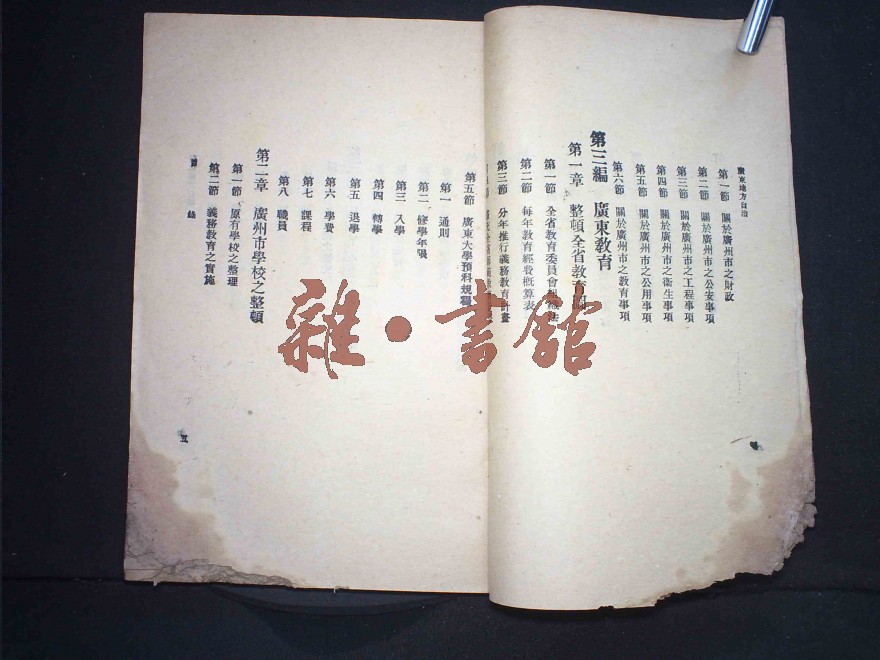 廣東地方自治
第一節 關於廣州市之財政
第二節 關於廣州市之公安事項
第三節 關於廣州市之工程事項
第四節 關於廣州市之衛生事項
第五節 關於廣州市之公用事項
第六節 關於廣州市之教育事項
第三編 廣東教育
第一章 整頓全省教育
第一節 全省教育委員會組織法
第二節 每年教育經費概算表
第三節 分年推行義務教育計畫
第五節 廣東大學預科規程
第一 通則
第二 修學年限
第三 入學
第四 轉學
第五 退學
第六 學費
第七 課程
第八 職員
第二章 廣州市學校之整頓
第一節 原有學校之整理
第二節 義務教育之實施
目錄
五
雜·書館